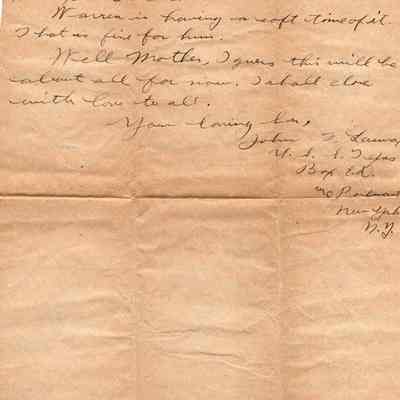 Warren is having a soft time of it.
That is fine for him.
Well Mother, I guess this will be
about all for now. I shall close
with love to all.
Your loving son,
John
U. S. S. Texas
Box
℅ Postmaster
New York
N.Y.